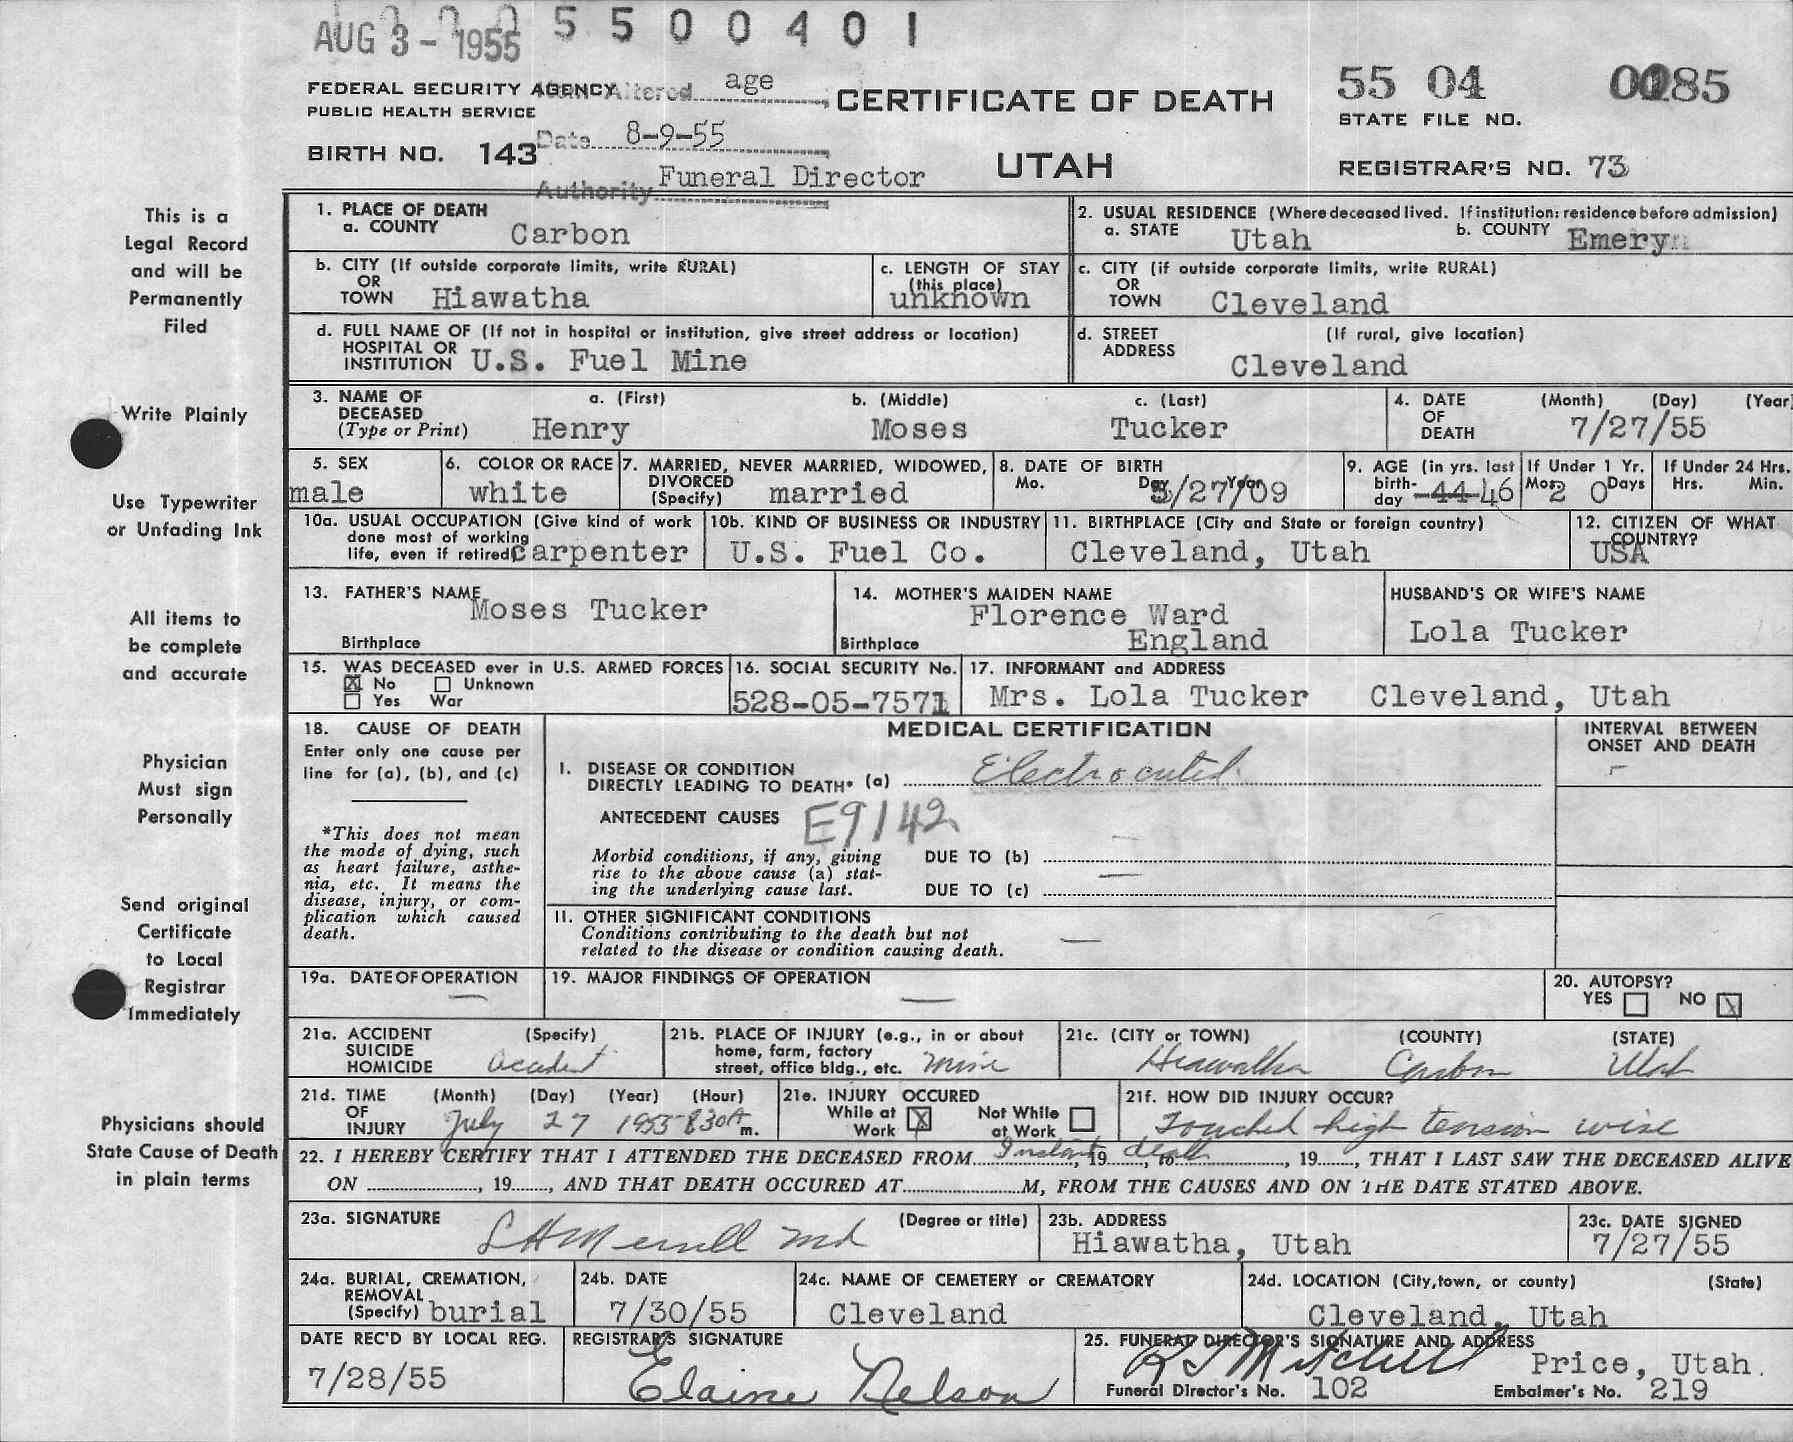 AUG 3 - 1955 5 5 0 0 4 0 1
FEDERAL SECURITY AGENCY
PUBLIC HEALTH SERVICE
Altered age
Date 8-9-55
Authority Funeral Director
BIRTH NO. 143
CERTIFICATE OF DEATH
UTAH
55 04 0185
STATE FILE NO.
REGISTRAR'S NO. 73
This is a
Legal Record
and will be
Permanently
Filed
Write Plainly
Use Typewriter
or Unfading Ink
All items to
be complete
and accurate
Physician
Must sign
Personally
Send original
Certificate
to Local
Registrar
Immediately
Physicians should
State Cause of Death
in plain terms
1. PLACE OF DEATH
a. COUNTY Carbon
2. USUAL RESIDENCE (Where deceased lived. If institution: residence before admission)
a. STATE Utah b. COUNTY Emery
b. CITY (If outside corporate limits, write RURAL)
OR
TOWN Hiawatha
c. LENGTH OF STAY
(this place)
unknown
c. CITY (if outside corporate limits, write RURAL)
OR
TOWN Cleveland
d. FULL NAME OF (If not in hospital or institution, give street address or location)
HOSPITAL OR
INSTITUTION U.S. Fuel Mine
d. STREET (If rural, give location)
ADDRESS
Cleveland
3. NAME OF a. (First) b. (Middle) c. (Last)
DECEASED
(Type or Print) Henry Moses Tucker
4. DATE (Month) (Day) (Year)
OF
DEATH 7/27/55
5. SEX
male
6. COLOR OR RACE
white
7. MARRIED, NEVER MARRIED, WIDOWED,
DIVORCED
(Specify) married
8. DATE OF BIRTH
Mo. Day Year
5/27/09
9. AGE (in yrs. last
birth-
day 44 46
If Under 1 Yr.
Mos. 2 0 Days
If Under 24 Hrs.
Hrs. Min.
10a. USUAL OCCUPATION (Give kind of work
done most of working
life, even if retired) Carpenter
10b. KIND OF BUSINESS OR INDUSTRY
U.S. Fuel Co.
11. BIRTHPLACE (City and State or foreign country)
Cleveland, Utah
12. CITIZEN OF WHAT
COUNTRY?
USA
13. FATHER'S NAME
Moses Tucker
Birthplace
14. MOTHER'S MAIDEN NAME
Florence Ward
Birthplace England
HUSBAND'S OR WIFE'S NAME
Lola Tucker
15. WAS DECEASED ever in U.S. ARMED FORCES
X No Unknown
Yes War
16. SOCIAL SECURITY No.
528-05-7571
17. INFORMANT and ADDRESS
Mrs. Lola Tucker Cleveland, Utah
18. CAUSE OF DEATH
Enter only one cause per
line for (a), (b), and (c)
*This does not mean
the mode of dying, such
as heart failure, asthe-
nia, etc. It means the
disease, injury, or com-
plication which caused
death.
MEDICAL CERTIFICATION
INTERVAL BETWEEN
ONSET AND DEATH
I. DISEASE OR CONDITION
DIRECTLY LEADING TO DEATH* (a) Electrocuted
ANTECEDENT CAUSES E9142
Morbid conditions, if any, giving
rise to the above cause (a) stat-
ing the underlying cause last.
DUE TO (b) —
DUE TO (c) —
II. OTHER SIGNIFICANT CONDITIONS
Conditions contributing to the death but not
related to the disease or condition causing death. —
19a. DATE OF OPERATION
—
19. MAJOR FINDINGS OF OPERATION
—
20. AUTOPSY?
YES NO X
21a. ACCIDENT (Specify)
SUICIDE
HOMICIDE accident
21b. PLACE OF INJURY (e.g., in or about
home, farm, factory
street, office bldg., etc. mine
21c. (CITY or TOWN) (COUNTY) (STATE)
Hiawatha Carbon Utah
21d. TIME (Month) (Day) (Year) (Hour)
OF
INJURY July 27 1955 830A m.
21e. INJURY OCCURED
While at Work X Not While at Work
21f. HOW DID INJURY OCCUR?
Touched high tension wire
22. I HEREBY CERTIFY THAT I ATTENDED THE DECEASED FROM Instant, 19 , to death , 19 , THAT I LAST SAW THE DECEASED ALIVE
ON , 19 , AND THAT DEATH OCCURED AT M, FROM THE CAUSES AND ON THE DATE STATED ABOVE.
23a. SIGNATURE (Degree or title)
L H Merrill md
23b. ADDRESS
Hiawatha, Utah
23c. DATE SIGNED
7/27/55
24a. BURIAL, CREMATION,
REMOVAL
(Specify) burial
24b. DATE
7/30/55
24c. NAME OF CEMETERY or CREMATORY
Cleveland
24d. LOCATION (City, town, or county) (State)
Cleveland, Utah
DATE REC'D BY LOCAL REG.
7/28/55
REGISTRAR'S SIGNATURE
Elaine Nelson
25. FUNERAL DIRECTOR'S SIGNATURE AND ADDRESS
R J Mitchell Price, Utah.
Funeral Director's No. 102 Embalmer's No. 219